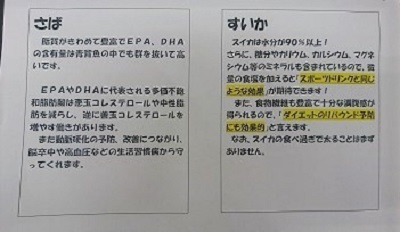 さば
脂質がきわめて豊富でEPA、DHA
の含有量は青背魚の中でも群を抜いて高
いです。
EPAやDHAに代表される多価不飽
和脂肪酸は悪玉コレステロールや中性脂
肪を減らし、逆に善玉コレステロールを
増やす働きがあります。
また動脈硬化の予防、改善につながり、
脳卒中や高血圧などの生活習慣病から守
ってくれます。
すいか
スイカは水分が90％以上！
さらに、糖分やカリウム、カルシウム、マグネ
シウム等のミネラルも含まれているので、微
量の食塩を加えると「スポーツドリンクと同じ
ような効果」が期待できます！
また、食物繊維も豊富で十分な満腹感が
得られるので、「ダイエットのリバウンド予防
にも効果的」と言えます。
なお、スイカの食べ過ぎで太ることはまず
ありません。